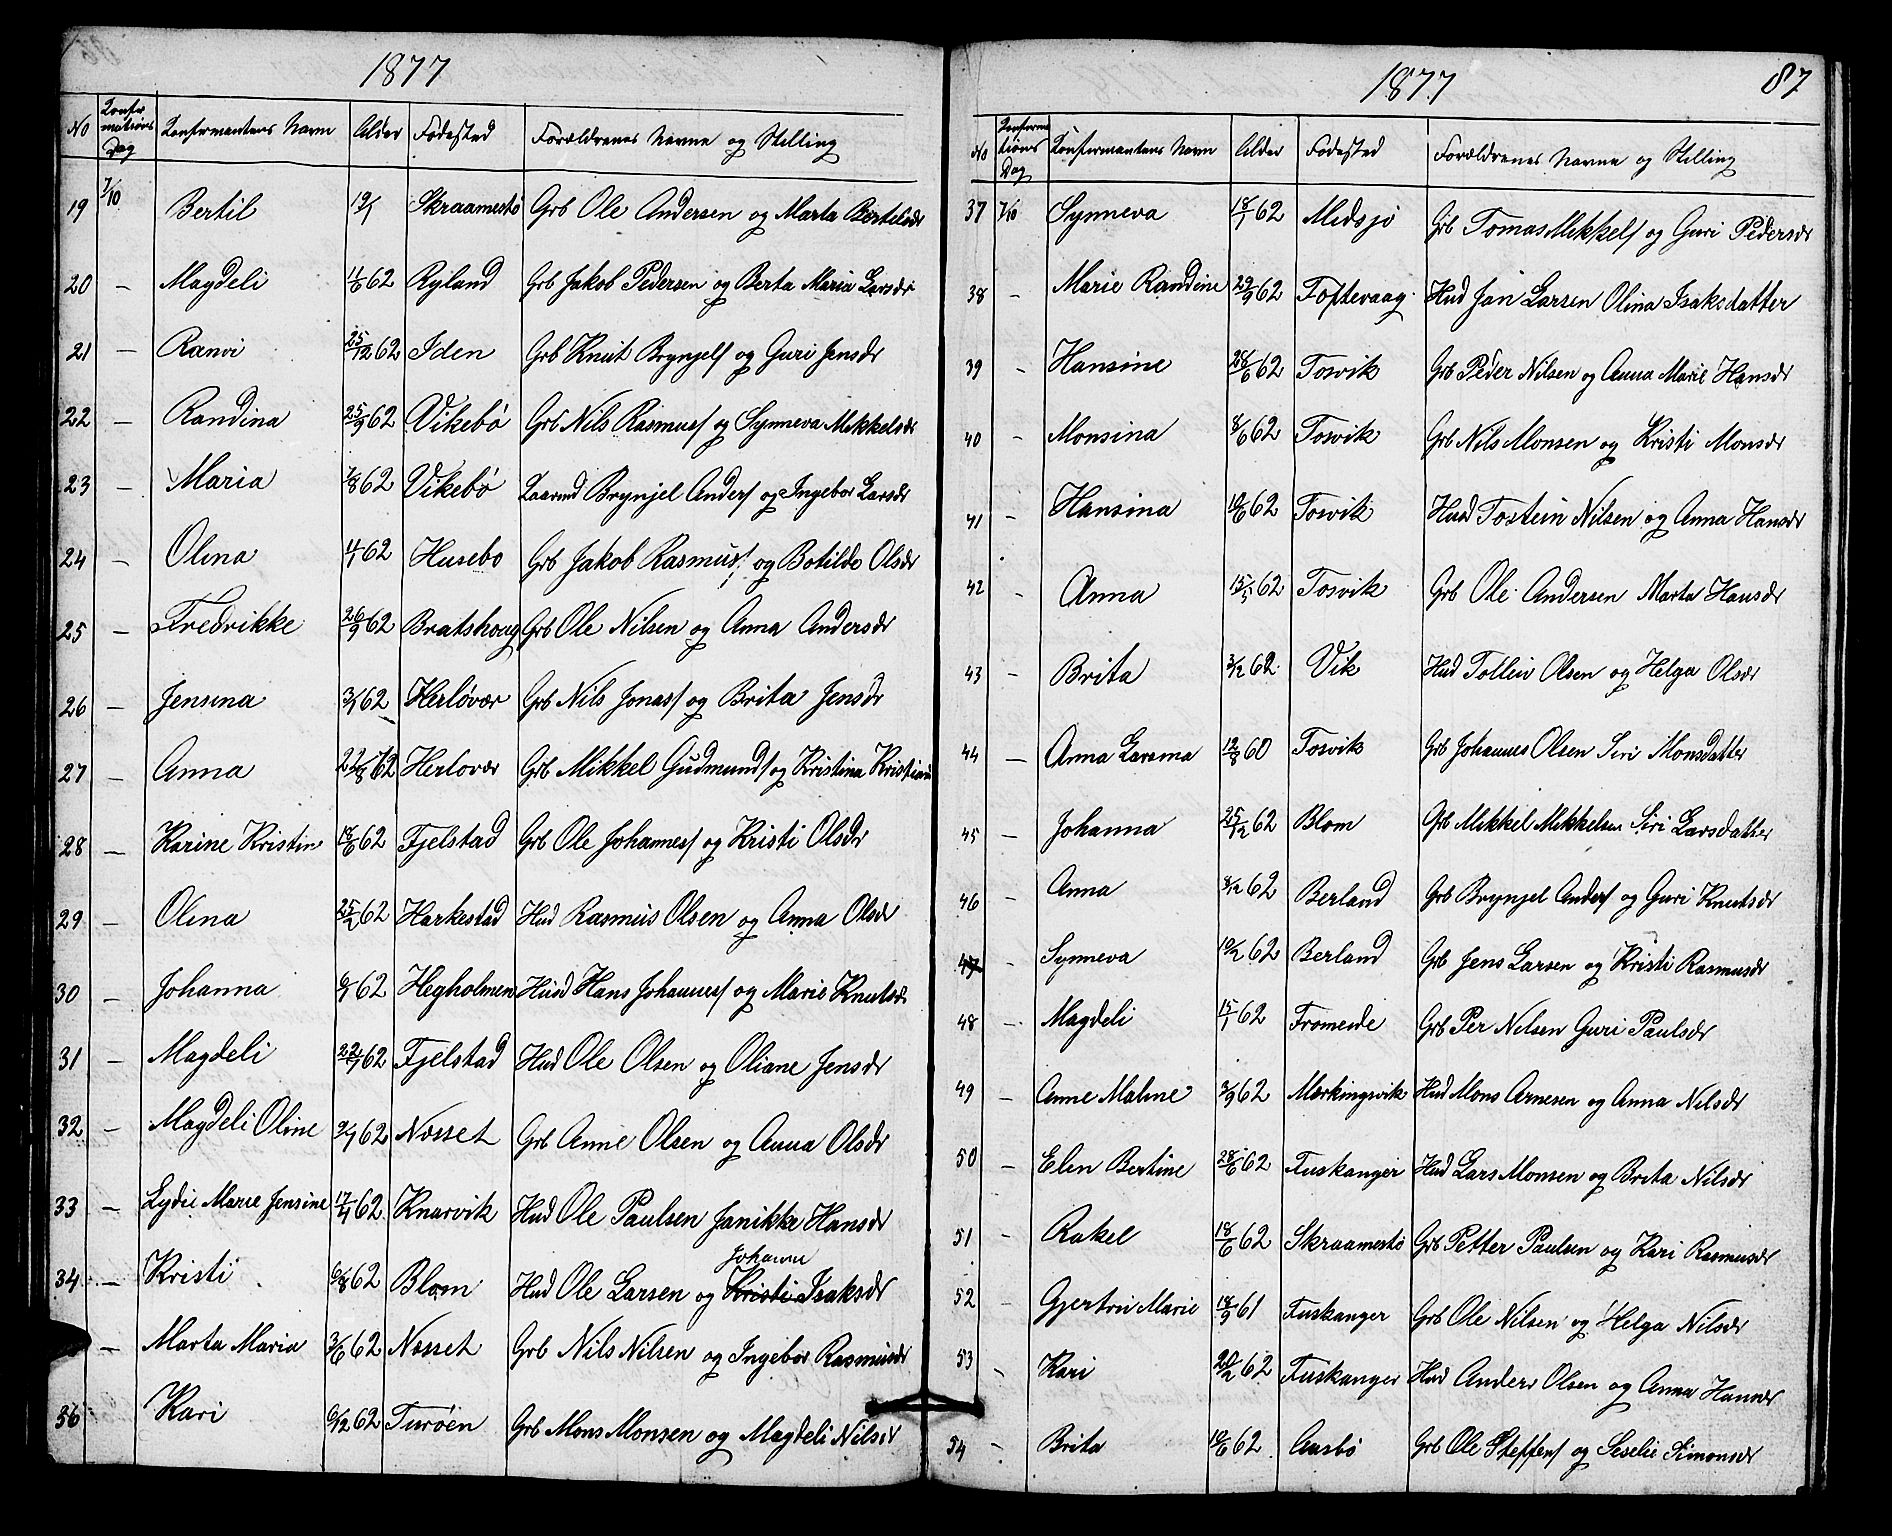 1877
No Konfirmations Dag Konfirmantens Navn Alder Fødested Forældrenes Navne og Stilling
19 7/10 Bertil 19/1 Skraamestø Grb Ole Andersen og Marta Bertilsdr
20 — Magdeli 11/6 62 Ryland Grb Jakob Pedersen og Berta Maria Larsdr
21 — Ranvi 25/12 62 Iden Grb Knut Brynjels og Guri Jensdr
22 — Randina 25/9 62 Vikebø Grb Nils Rasmuss og Synneva Mikkelsdr
23 — Maria 7/8 62 Vikebø Laarmd Brynjel Anders og Ingebor Larsdr
24 — Olina 4/1 62 Husebø Grb Jakob Rasmuss og Botilde Olsdr
25 — Fredrikke 26/9 62 Bratshoug Grb Ole Nilsen og Anna Andersdr
26 — Jensina 3/1 62 Herløvær Grb Nils Jonass og Brita Jensdr
27 — Anna 22/8 62 Herlovær Grb Mikkel Gudmunds og Kristina Kristian
28 — Karine Kristine 18/6 62 Fjelstad Grb Ole Johanness og Kristi Olsdr
29 — Olina 25/2 62 Harkestad Hud Rasmus Olsen og Anna Olsdr
30 — Johanna 6/1 62 Hegholmen Husd Hans Johanness og Marie Knutsdr
31 — Magdeli 22/7 62 Fjelstad Hud Ole Olsen og Oliane Jensdr
32 — Magdeli Oline 9/7 62 Nosset Grb Anne Olsen og Anna Olsdr
33 — Lydie Marie Jensine 17/4 62 Knarvik Hud Ole Paulsen Janikke Hansdr
Johanne
34 — Kristi 6/8 62 Blom Hud Ole Larsen og Kristi Isaksdr
— Marta Maria 3/6 62 Nosset Grb Nils Nilsen og Ingebor Rasmusdr
36 Kari 6/12 62 Turöen Grb Mons Monsen og Magdeli Nilsdr
1877 87
No Konfirmations Dag Konfirmantens Navn Alder Fødested Forældrenes Navne og Stilling
37 7/10 Synneva 18/1 62 Midsjø Grb Tomas Mikkels og Guri Pedersdr
38 — Marie Randine 29/9 62 Toftevaag Hud Jan Larsen Olina Isaksdatter
39 — Hansine 28/6 62 Tosvik Grb Peder Nilsen og Anna Marie Hansdr
40 — Monsina 8/6 62 Tosvik Grb Nils Monsen og Kristi Monsdr
41 — Hansina 10/6 62 Tosvik Husd Tostein Nilsen og Anna Hansdr
42 — Anna 15/5 62 Tosvik Grb Ole Andersen Marta Hansdr
43 — Brita 3/12 62 Vik Hud Tolleiv Olsen og Helga Olsdr
44 — Anna Larsina 12/8 60 Tosvik Grb Johannes Olsen Siri Monsdatter
45 — Johanna 25/12 62 Blom Grb Mikkel Mikkelsen Siri Larsdatter
46 — Anna 8/12 62 Berland Grb Brynjel Anders og Guri Knutsdr
47 — Synneva 10/2 62 Berland Grb Jens Larsen og Kristi Rasmusdr
48 — Magdeli 15/1 62 Fromeide Grb Per Nilsen Guri Paulsdr
49 — Anne Maline 3/9 62 Morkingsvik Hud Mons Arnesen og Anna Nilsdr
50 — Elen Bertine 28/6 62 Fuskanger Hud Lars Monsen og Brita Nilsdr
51 — Rakel 18/6 62 Skraamestø Grb Petter Paulsen og Kari Rasmusdr
52 — Gjertrui Marie 18/9 61 Fuskanger Grb Ole Nilsen og Helga Nilsdr
53 — Kari 20/2 62 Fuskanger Hud Anders Olsen og Anna Hansdr
54 — Brita 10/6 62 Aasbø Grb Ole Steffens og Seselie Simonsdr